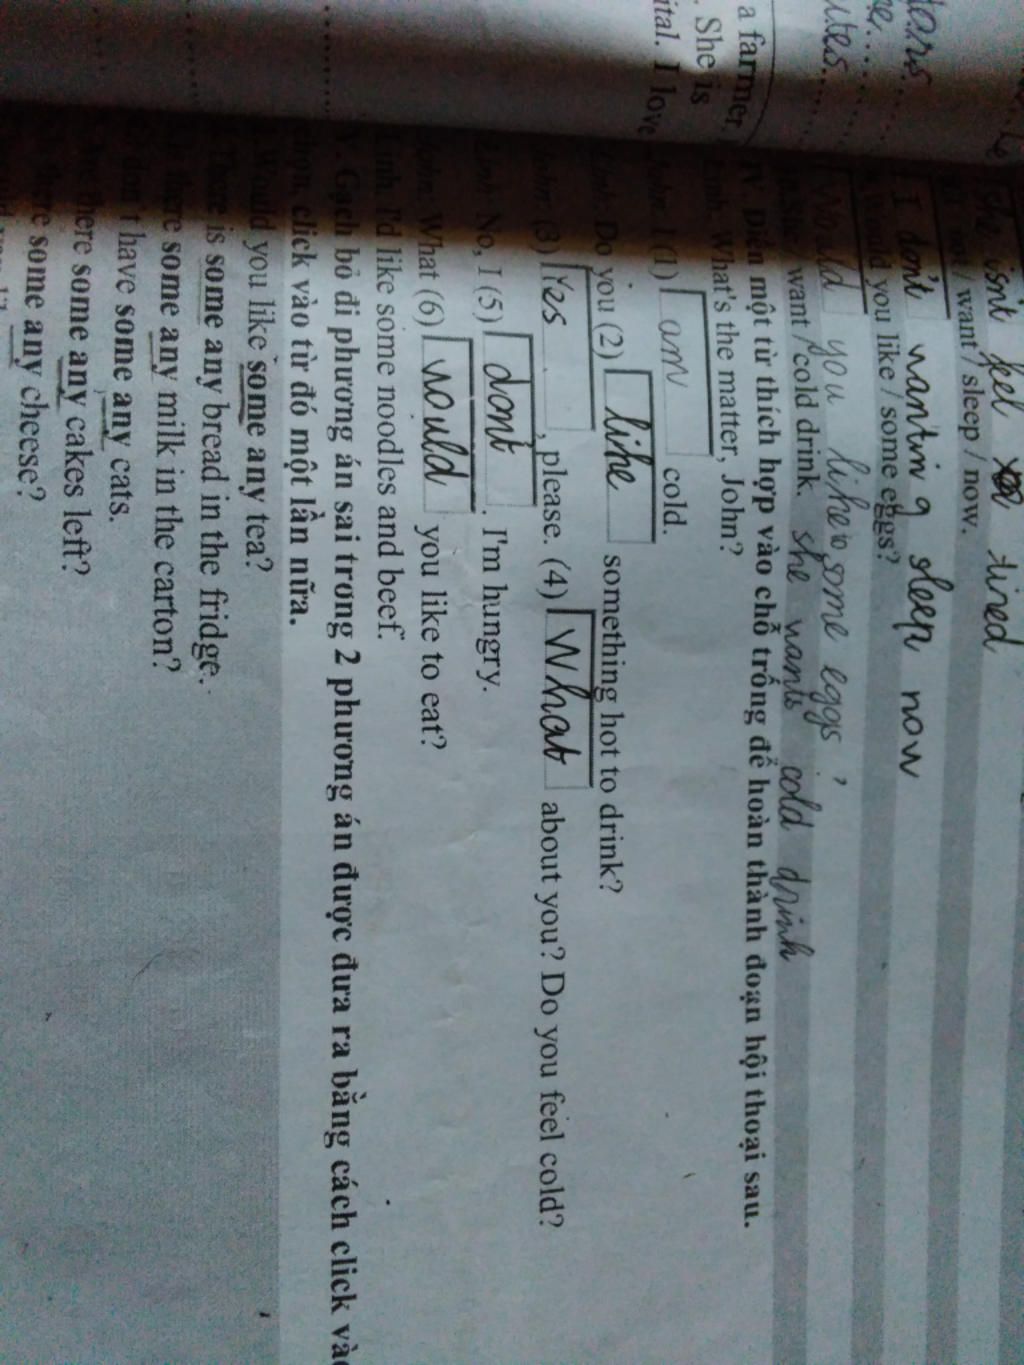 a farmer.
. She is
ital. I love
she isn't feel tired
want / sleep / now.
I don't wanting sleep now
Would you like / some eggs?
Would you like to some eggs?
want / cold drink. she wants cold drink
IV. Điền một từ thích hợp vào chỗ trống để hoàn thành đoạn hội thoại sau.
Linh: What's the matter, John?
John: I (1) am cold.
Linh: Do you (2) like something hot to drink?
John: (3) Yes, please. (4) What about you? Do you feel cold?
Linh: No, I (5) don't. I'm hungry.
John: What (6) would you like to eat?
Linh: I'd like some noodles and beef.
V. Gạch bỏ đi phương án sai trong 2 phương án được đưa ra bằng cách click vào
click vào từ đó một lần nữa.
Would you like some any tea?
There is some any bread in the fridge.
there some any milk in the carton?
don't have some any cats.
there some any cakes left?
there some any cheese?